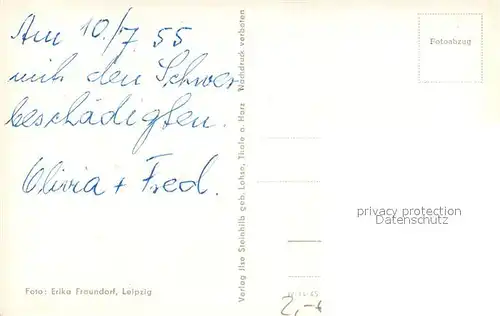 Am 10./7. 55
mit den Schwer
beschädigten.
Olivia + Fred.
Foto: Erika Fraundorf, Leipzig
Verlag Ilse Steinhilb geb. Lohse, Thale a. Harz Nachdruck verboten
Fotoabzug
privacy protection
2,-